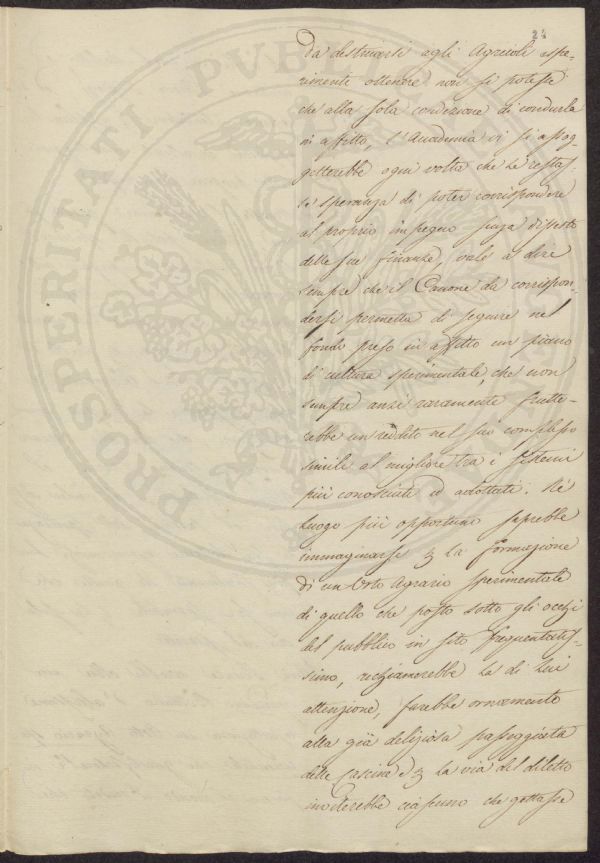 24
da destinarsi agli Agricoli espe-
rimenti ottenere non si potesse
che alla sola condizione di condurla
in affitto, l'Accademia vi si assog-
getterebbe ogni volta che Le restas-
se speranza di poter corrispondere
al proprio impegno senza dissesto
delle sue finanze, vale a dire
sempre che il Canone da corrispon-
dersi permetta di seguire nel
fondo preso in affitto un piano
di cultura sperimentale, che non
sempre anzi raramente frutte-
rebbe un reddito nel suo complesso
simile al migliore tra i sistemi
più conosciuti ed adottati. Nè
luogo più opportuno saprebbe
immaginarsi la formazione
di un Orto Agrario sperimentale
di quello che posto sotto gli occhj
del pubblico in sito frequentatis-
simo, richiamerebbe la di Lui
attenzione, farebbe ornamento
alla già deliziosa passeggiata
delle Cascine, e la via del diletto
inviterebbe ciascuno che gettasse
PROSPERITATI PVBL